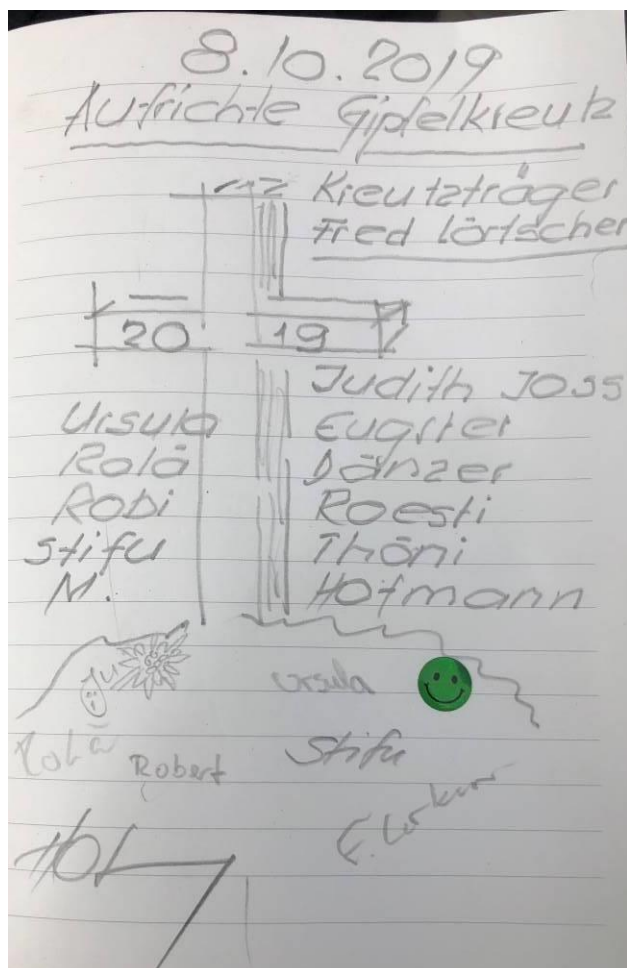 8.10.2019
Aufrichte Gipfelkreutz
Kreutzträger
Fred Lörtscher
20 19
Judith Joss
Ursula Eugster
Rolä Dänzer
Robi Roesti
Stifu Thöni
M. Hofmann
Ju
Ursula
Rolä
Robert
Stifu